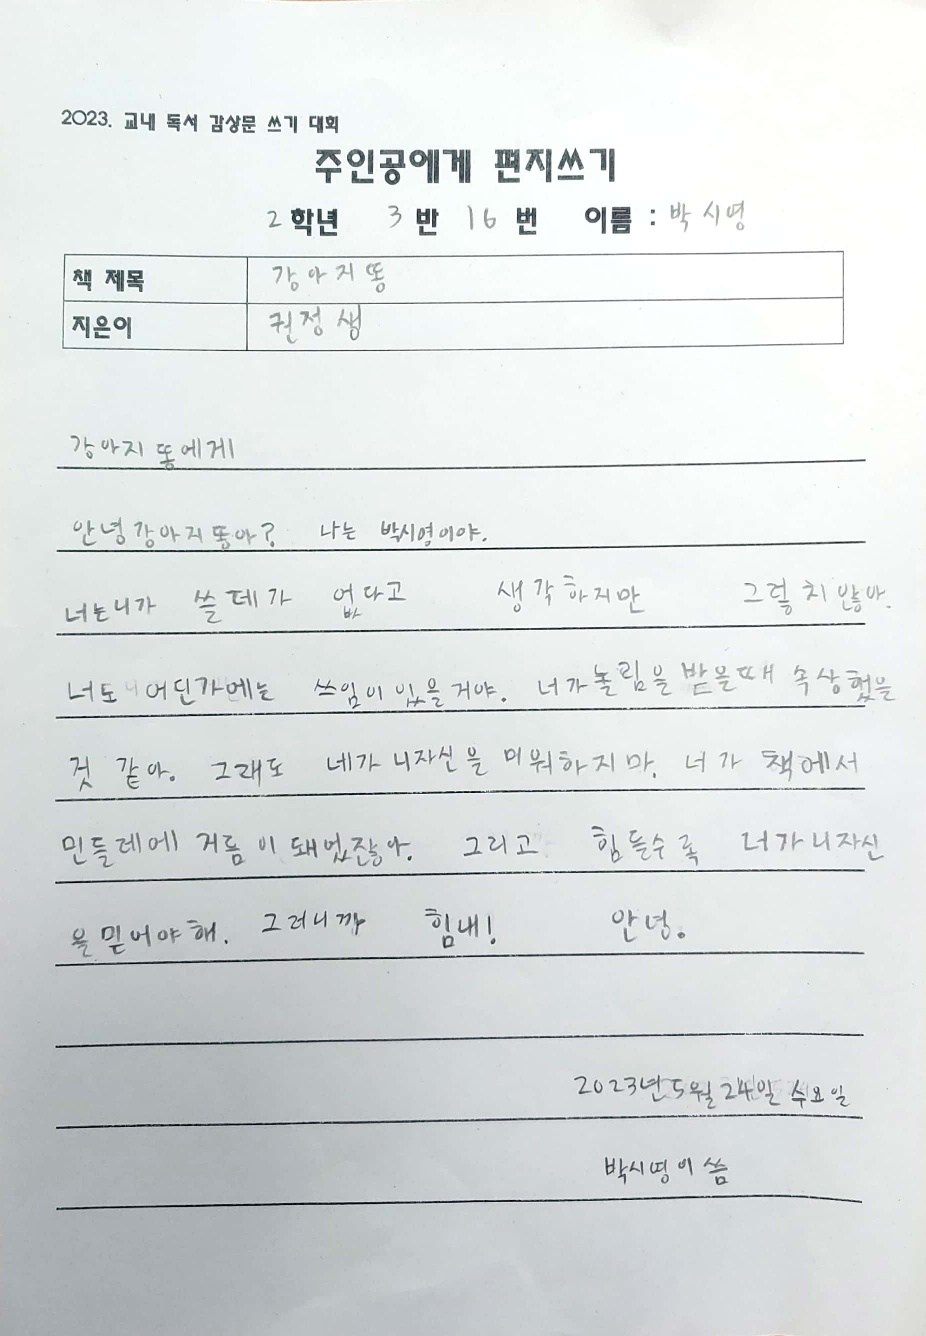 2023. 교내 독서 감상문 쓰기 대회
주인공에게 편지쓰기
2 학년 3 반 16 번 이름 : 박시영
책 제목 강아지똥
지은이 권정생
강아지 똥에게
안녕 강아지 똥아? 나는 박시영이야.
너는 니가 쓸데가 없다고 생각하지만 그렇치 않아.
너도 어딘가에는 쓰임이 있을거야. 너가 놀림을 받을때 속상했을
것 같아. 그래도 네가 니자신을 미워하지마. 너가 책에서
민들레에 거름이 돼었잖아. 그리고 힘들수록 너가 니자신
을 믿어야 해. 그러니까 힘내! 안녕.
2023년 5월 24일 수요일
박시영이 씀